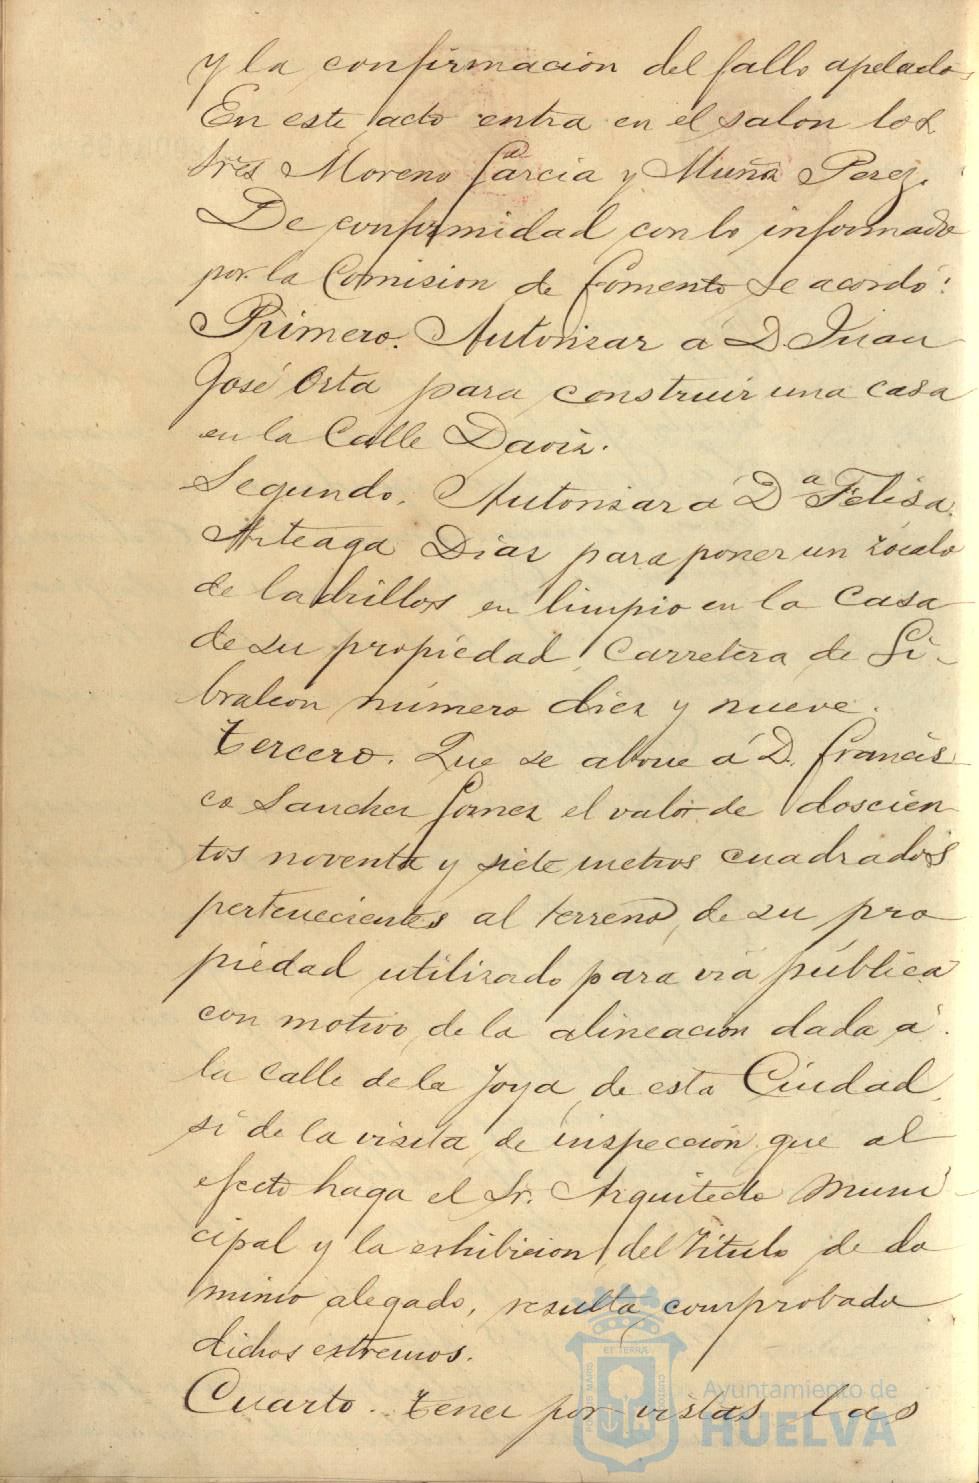 y la confirmacion del fallo apelado.
En este acto entra en el salon los
Sres Moreno Garcia y Muña Perez.
De conformidad con lo informado
por la Comision de Fomento se acordó:
Primero. Autorizar á D. Juan
José Orta para construir una casa
en la Calle Daoiz.
Segundo. Autorizar á Dª Felisa
Arteaga Dias para poner un zócalo
de ladrillos en limpio en la casa
de su propiedad Carretera de Gi-
braleon número diez y nueve.
Tercero. Que se abone á D. Francis-
co Sanchez Gomez el valor de doscien-
tos noventa y siete metros cuadrados
pertenecientes al terreno de su pro
piedad utilizado para via pública
con motivo de la alineacion dada á
la calle de la Joya de esta Ciudad,
si de la visita de inspección que al
efecto haga el Sr. Arquitecto Muni-
cipal y la exhibicion del título de do
minio alegado, resulta comprobado
dichos extremos.
Cuarto. Tener por vistas las
Ayuntamiento de
HUELVA